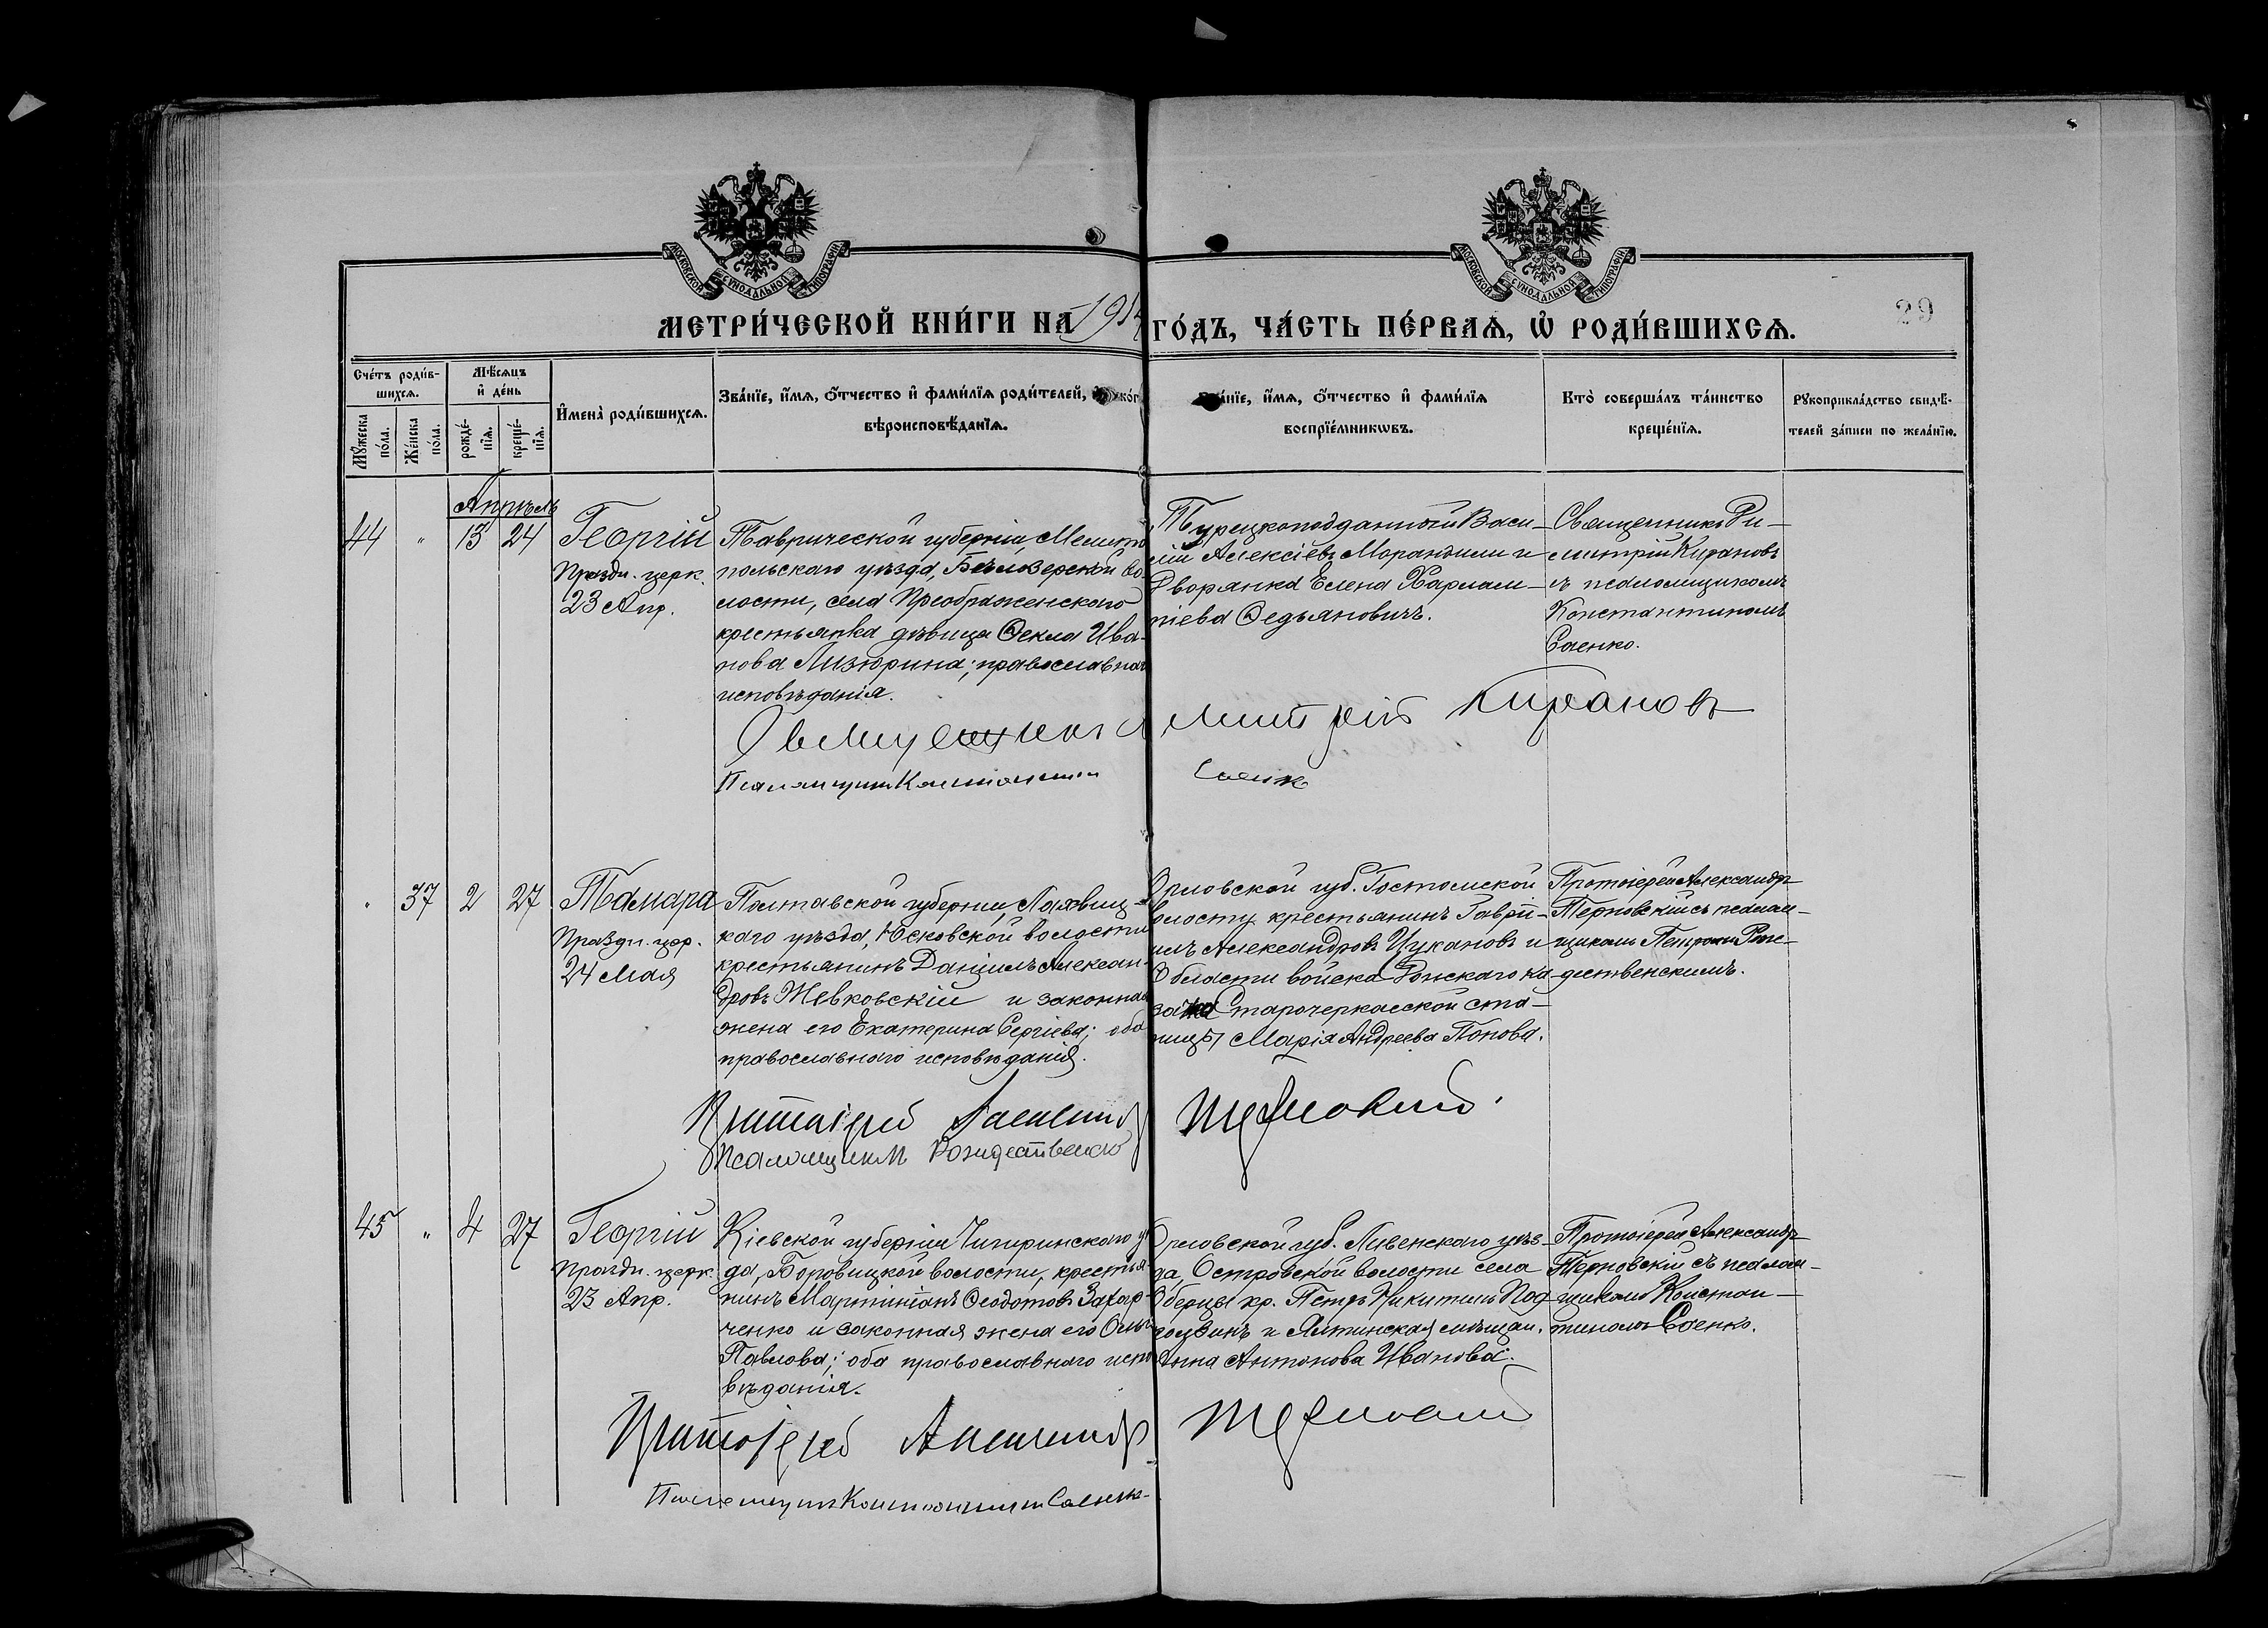 МОСКОВСКОЙ СѴНОДАЛЬНОЙ ТИПОГРАФІИ
МОСКОВСКОЙ СѴНОДАЛЬНОЙ ТИПОГРАФІИ
МЕТРИ́ЧЕСКОЙ КНИ́ГИ НА 191
ГО́ДЪ, ЧА́СТЬ ПЕ́РВАѦ, Ѡ҆ РОДИ́ВШИХСѦ.
29
Сче́тъ роди́в-
шихсѧ.
Мꙋ́жеска по́ла.
Же́нска по́ла.
Мѣ́сѧцъ
и҆ де́нь
рожде́-нїѧ.
креще́-нїѧ.
И҆мена̀ роди́вшихсѧ.
Зва́нїе, и҆́мѧ, ѻ҆́тчество и҆ фами́лїѧ роди́телей, и҆
вѣроисповѣ́данїѧ.
Зва́нїе, и҆́мѧ, ѻ҆́тчество и҆ фами́лїѧ
воспрїе́мникѡвъ.
Кто̀ соверша́лъ та́инство
креще́нїѧ.
Рꙋкоприкла́дство свидѣ́-
телей за́писи по жела́нїю.
Апрѣль
44 " 13 24 Георгій
Праздн. церк.
23 Апр.
Таврической губерніи, Мелито
польскаго уѣзда, Бѣлозерской во
лости, села Преображенскаго
крестьянка дѣвица Ѳекла Ива-
нова Мизюрина; православнаго
исповѣданія.
Турецкоподданный Васи-
лій Алексіевъ Морандили и
Дворянка Елена Харлам-
піева Ѳедьяновичъ.
Священникъ Ди-
митрій Кирановъ
съ псаломщикомъ
Константиномъ
Саенко.
Священникъ Димитрій Кирановъ
Псаломщикъ Константинъ Саенко
" 37 2 27 Тамара
Праздн. цер.
24 Мая
Полтавской губерніи, Лохвиц-
каго уѣзда, Юсковской волости
крестьянинъ Даніилъ Алексан-
дровъ Жевковскій и законная
жена его Екатерина Сергіева; оба
православнаго исповѣданія.
Орловской губ. Гостомской
волости крестьянинъ Гаврі-
илъ Александровъ Цукановъ и
Области войска Донскаго ка
зачка Старочеркасской ста-
ницы Марія Андреева Попова.
Протоіерей Александръ
Терновскій съ псалом-
щикомъ Петромъ Рож-
дественскимъ.
Протоіерей Александръ Терновскій
Псаломщикъ Рождественскій
45 " 4 27 Георгій
Праздн. церк.
23 Апр.
Кіевской губерніи Чигиринскаго уѣ
да, Боровицкой волости, крестья
нинъ Мартиніанъ Ѳеодотовъ Захар-
ченко и законная жена его Ольга
Павлова; оба православнаго испо
вѣданія.
Орловской губ. Ливенскаго уѣз-
да, Островской волости села
Оберцы кр. Петръ Никитинъ Под-
и Ялтинская мѣщан.
Анна Антонова Иванова.
Протоіерей Александръ
Терновскій съ псалом-
щикомъ Констан-
тиномъ Саенко.
Протоіерей Александръ Терновскій
Псаломщикъ Константинъ Саенко